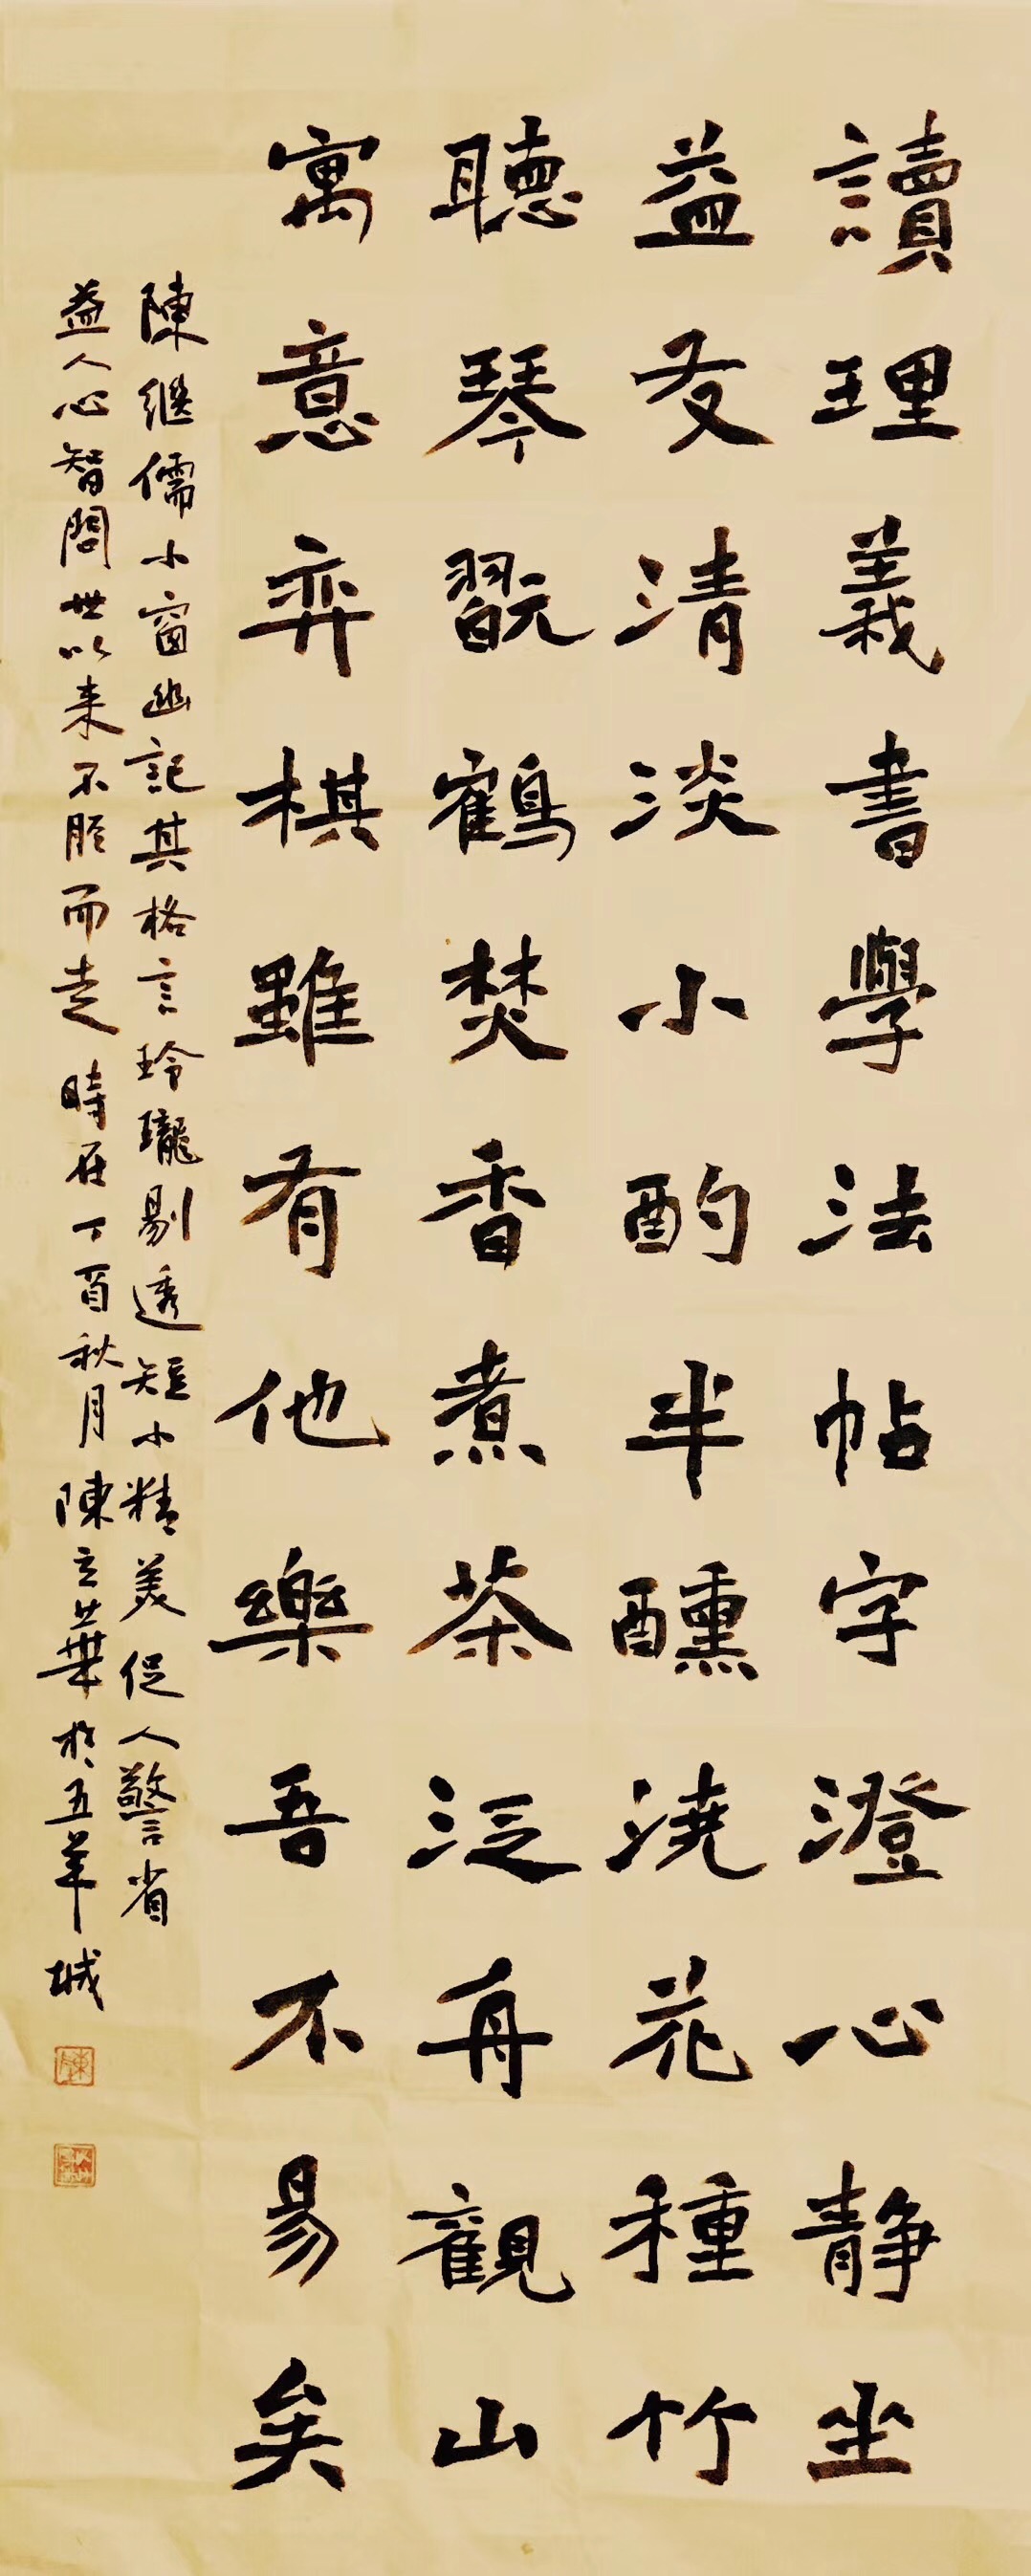 讀理義書學法帖字澄心靜坐
益友清淡小酌半醺澆花種竹
聽琴翫鶴焚香煮茶泛舟觀山
寓意弈棋雖有他樂吾不易矣
陳继儒小窗幽記其格言玲瓏剔透短小精美促人警省
益人心智問世以来不胫而走時在丁酉秋月陳立華於五羊城